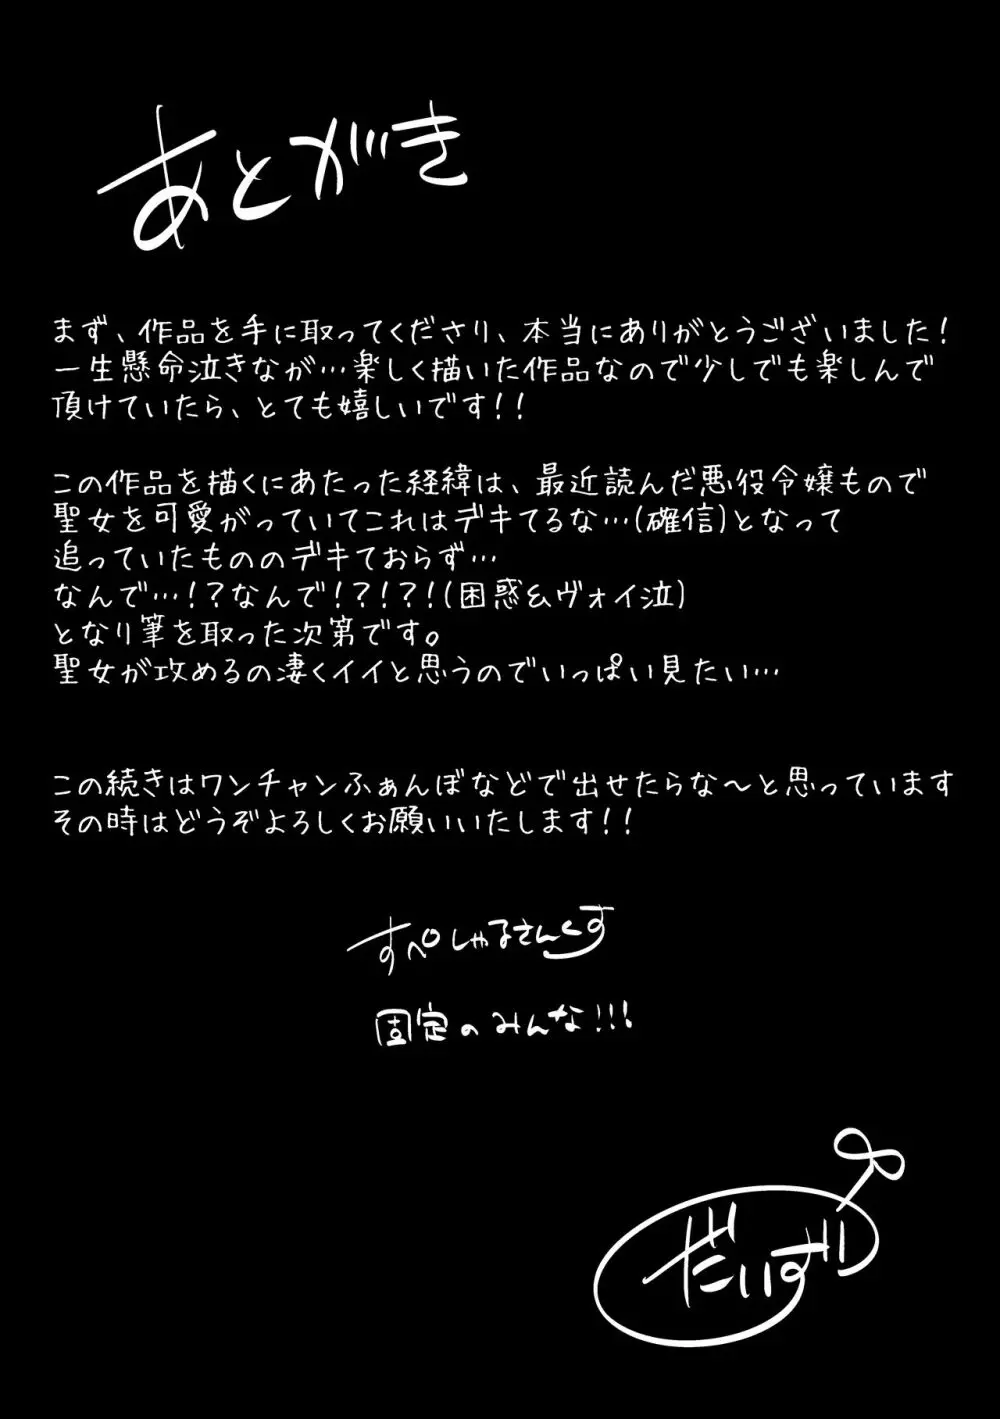 あとがき
まず、作品を手に取ってくださり、本当にありがとうございました!
一生懸命泣きなが…楽しく描いた作品なので少しでも楽しんで
頂けていたら、とても嬉しいです!!
この作品を描くにあたった経緯は、最近読んだ悪役令嬢もので
聖女を可愛がっていてこれはデキてるな…(確信)となって
追っていたもののデキておらず…
なんで…!?なんで!?!?!(困惑&ヴォイ泣)
となり筆を取った次第です。
聖女が攻めるの凄くイイと思うのでいっぱい見たい…
この続きはワンチャンふぁんぼなどで出せたらな～と思っています
その時はどうぞよろしくお願いいたします!!
すぺしゃるさんくす
固定のみんな!!!
だいず